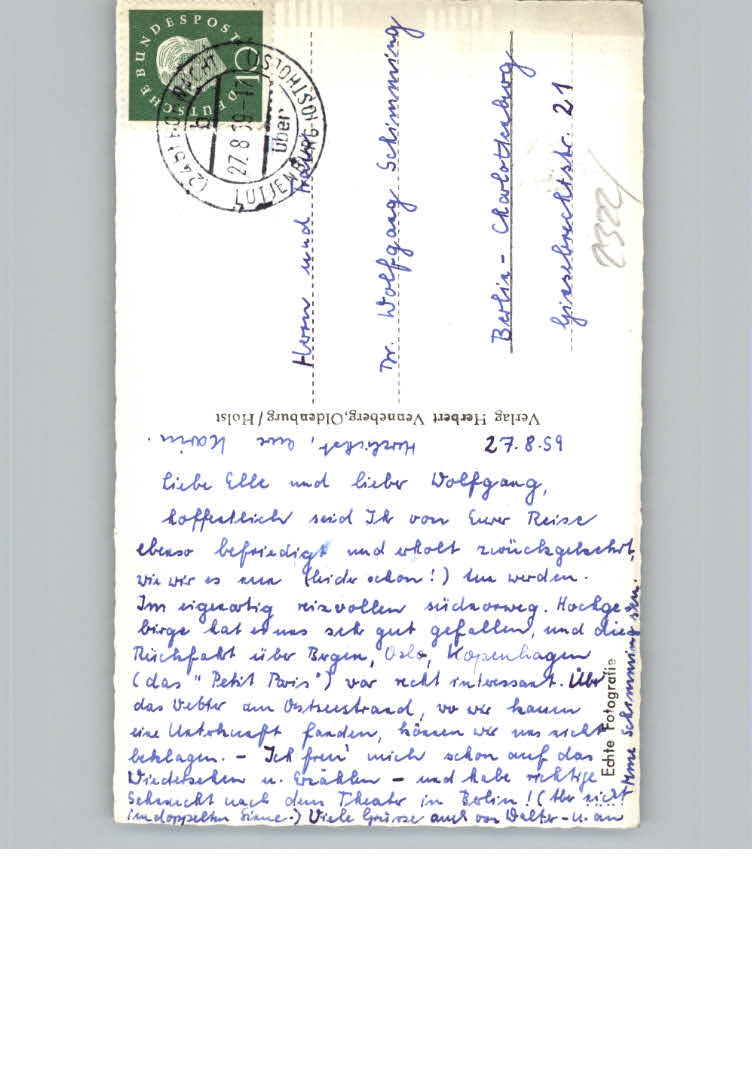 DEUTSCHE BUNDESPOST
10
27.8.59-17
b
über
LÜTJENBURG-OSTHOLST
Herrn und Frau
Dr. Wolfgang Schimming
Berlin-Charlottenburg
Giesebrechtstr. 21
2322
Verlag Herbert Venneberg, Oldenburg/Holst
27.8.59
Liebe Elle und lieber Wolfgang,
hoffentlich seid Ihr von Eurer Reise
ebenso befriedigt und erholt zurückgekehrt,
wie wir es nun (leider schon!) tun werden.
Im eigenartig reizvollen südnorweg. Hochge-
birge hat es uns sehr gut gefallen, und die
Rückfahrt über Bergen, Oslo, Kopenhagen
(das "Petit Paris") war recht interessant. Über
das Wetter am Ostseestrand, wo wir kaum
eine Unterkunft fanden, können wir uns nicht
beklagen. - Ich freu' mich schon auf das
Wiedersehen u. Erzählen - und habe richtige
Sehnsucht nach dem Theater in Berlin! (Aber nicht
im doppelten Sinne.) Viele Grüsse auch von Walter - u. an
Schimming sen.
Herzlichst, eure Karin.
Echte Fotografie